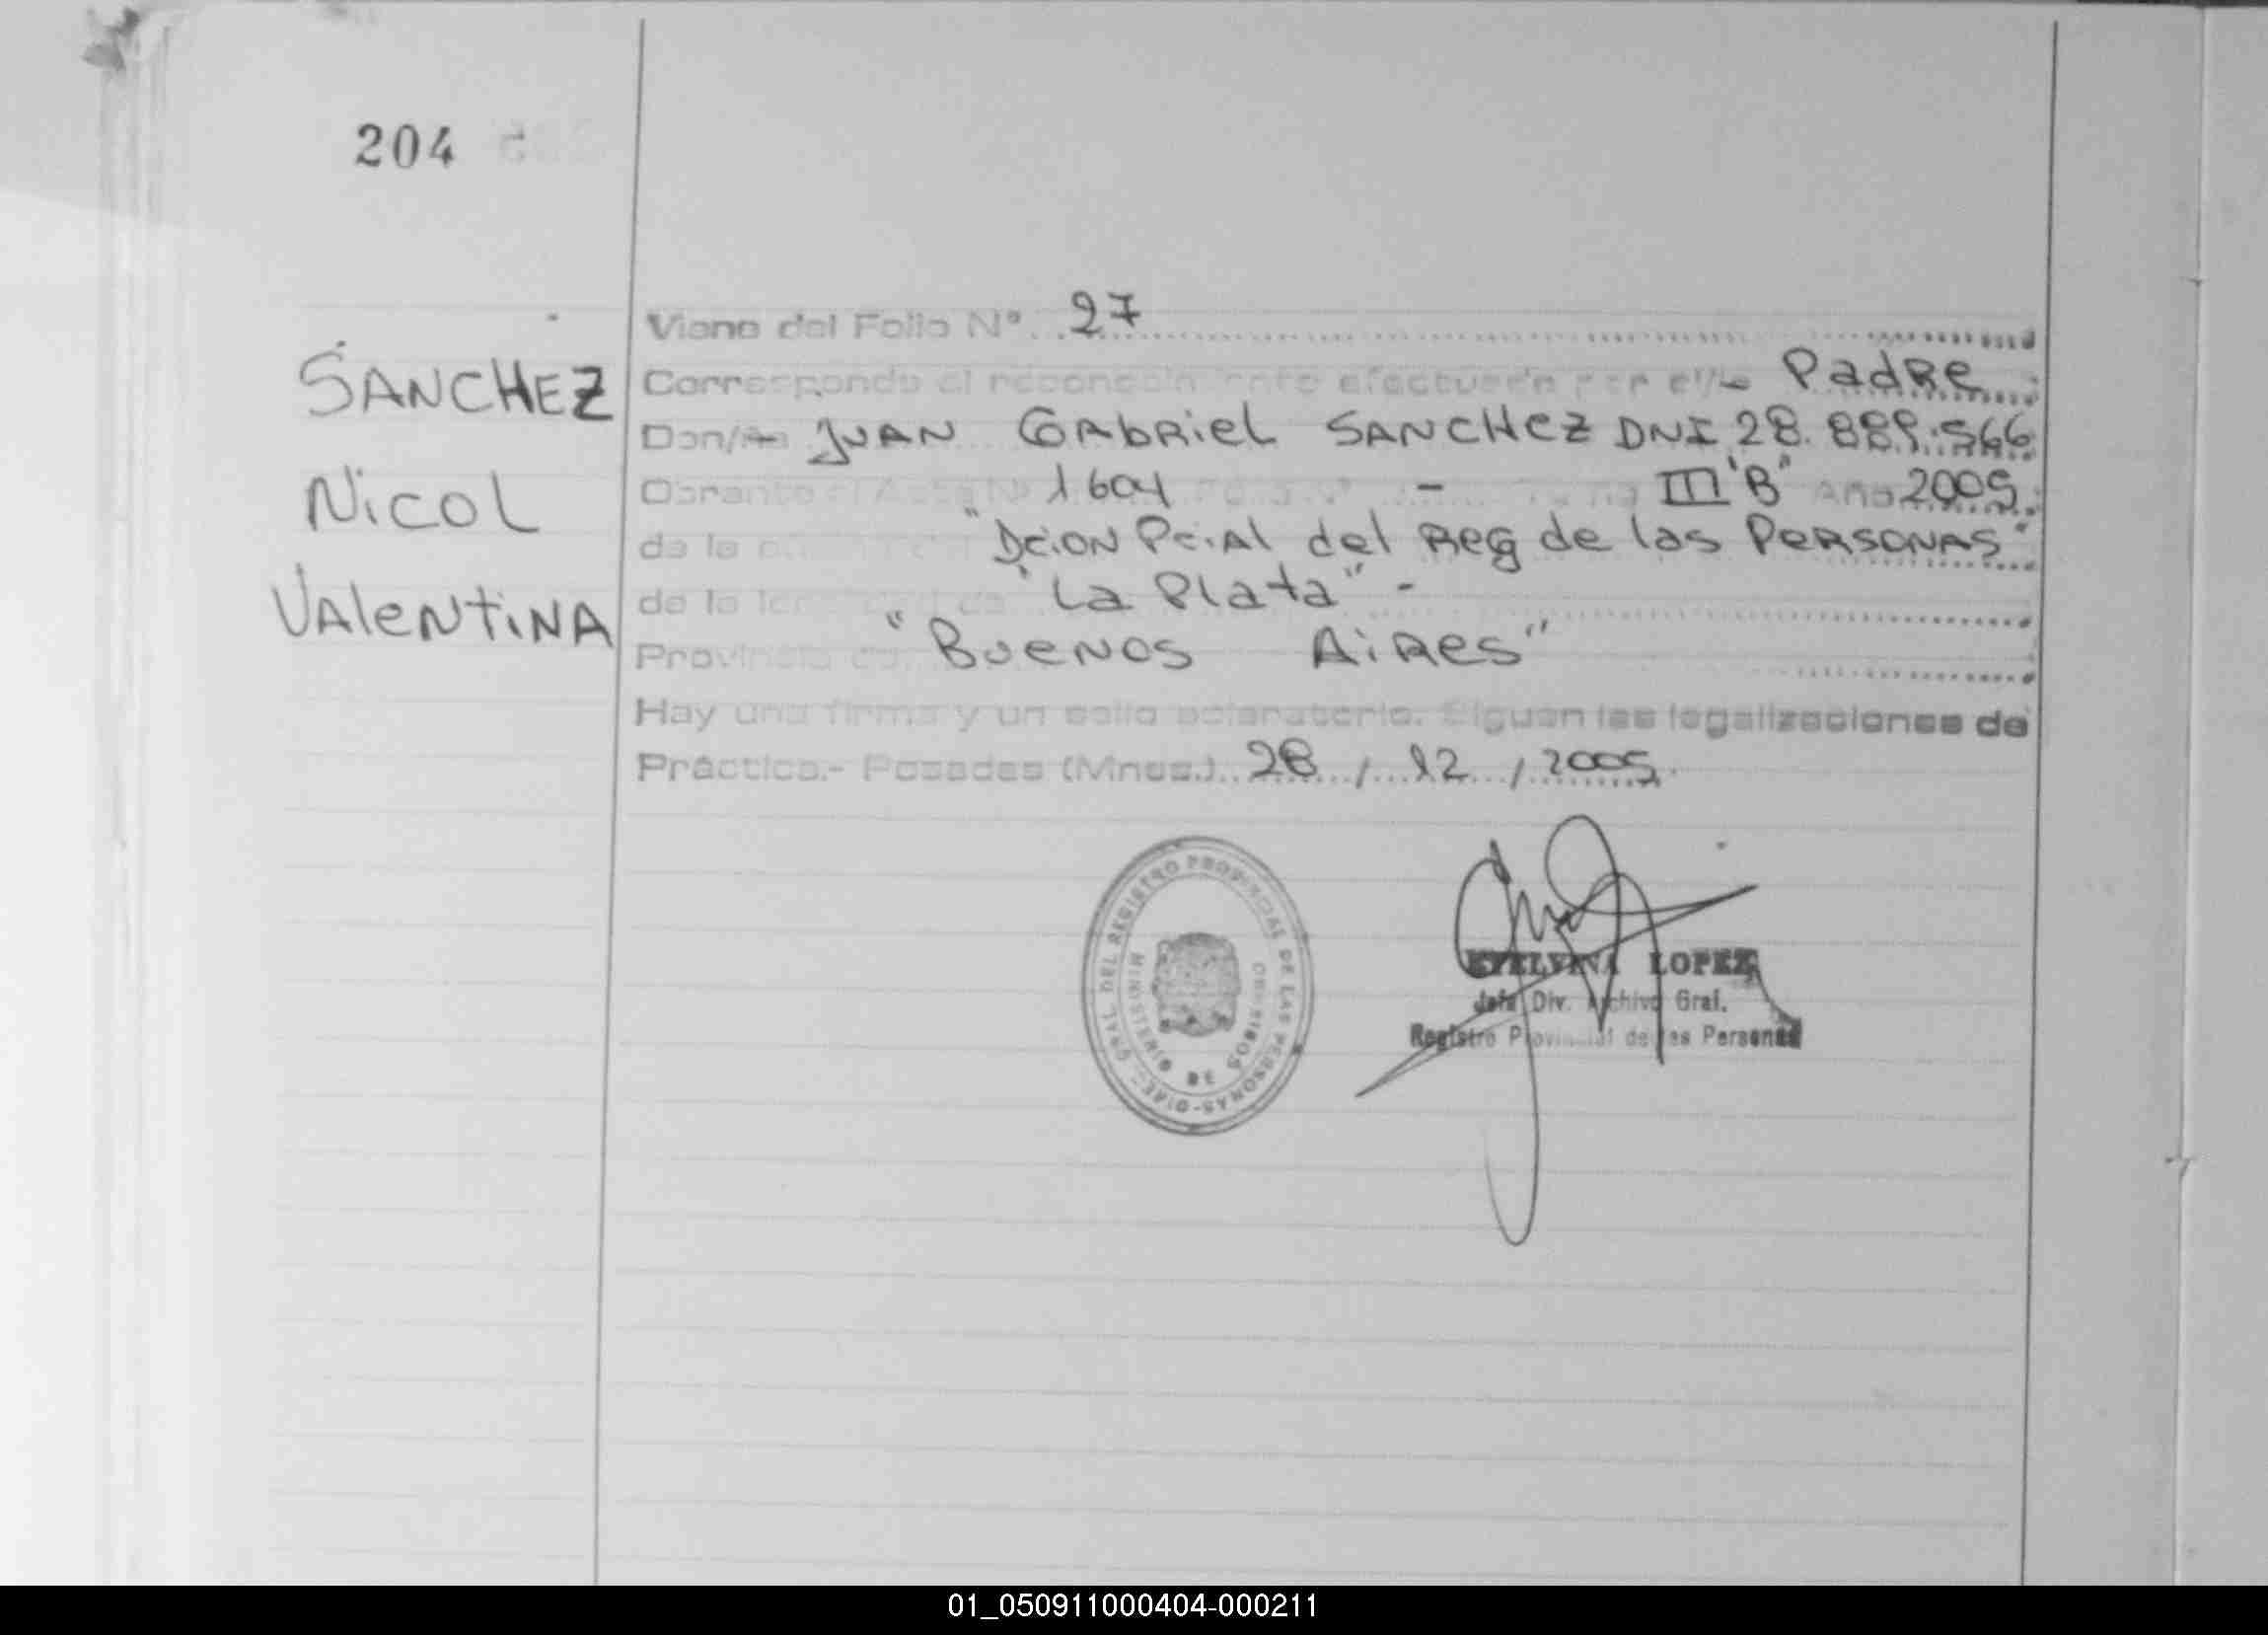 204
SANCHEZ
NICOL
VALENTINA
Viene del Folio N° 27
Corresponde al reconocimiento efectuado por el/la Padre
Don/ña JUAN GABRIEL SANCHEZ DNI 28.889.566
Obrante el Acta N° 1604 Folio N° - III "B" Año 2005.
de la "Dcion Pcial del Reg de las Personas"
de la "La Plata" -
Provincia de "Buenos Aires"
Hay una firma y un sello aclaratorio. Siguen las legalizaciones de
Práctica.- Posadas (Mnes.) 28 / 12 / 2005
GRAL. DEL REGISTRO PROVINCIAL DE LAS PERSONAS-DIREC.
MINISTERIO DE GOBIERNO
MISIONES
LOPEZ
Jefa Div. Archivo Gral.
Registro Provincial de las Personas
01_050911000404-000211